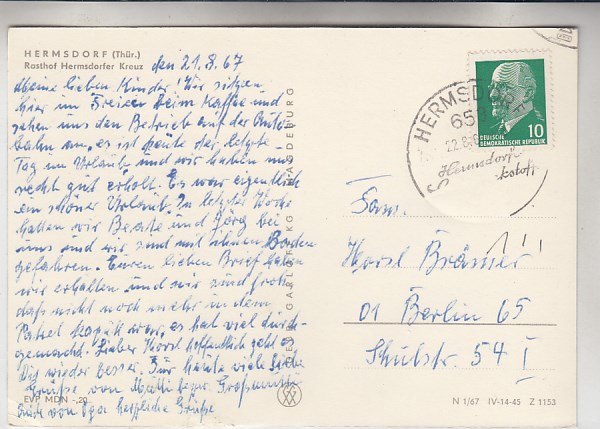 HERMSDORF (Thür.)
Rasthof Hermsdorfer Kreuz
den 21.8.67
Meine lieben Kinder! Wir sitzen
hier im Freien beim Kaffee und
sehen uns den Betrieb auf der Auto
bahn an, es ist heute der letzte
Tag im Urlaub und wir haben uns
recht gut erholt. Es war eigentlich
ein schöner Urlaub. In letzter Woche
hatten wir Beate und Jörg bei
uns und wir sind mit ihnen Baden
gefahren. Euren lieben Brief haben
wir erhalten und wir sind froh
daß nicht noch mehr in dem
Paket kaputt war, es hat viel durch-
gemacht. Lieber Horst hoffentlich geht es
Dir wieder besser. Für heute viele liebe
Grüße von
von Opa herzliche Grüße
EVP MDN -,20
MAGDEBURG
HERMSDORF
653
22.8.
DEUTSCHE
DEMOKRATISCHE REPUBLIK
10
Hermsdorfer
Fam.
Horst Brämer
01 Berlin 65
Schulstr. 54 I
N 1/67 IV-14-45 Z 1153